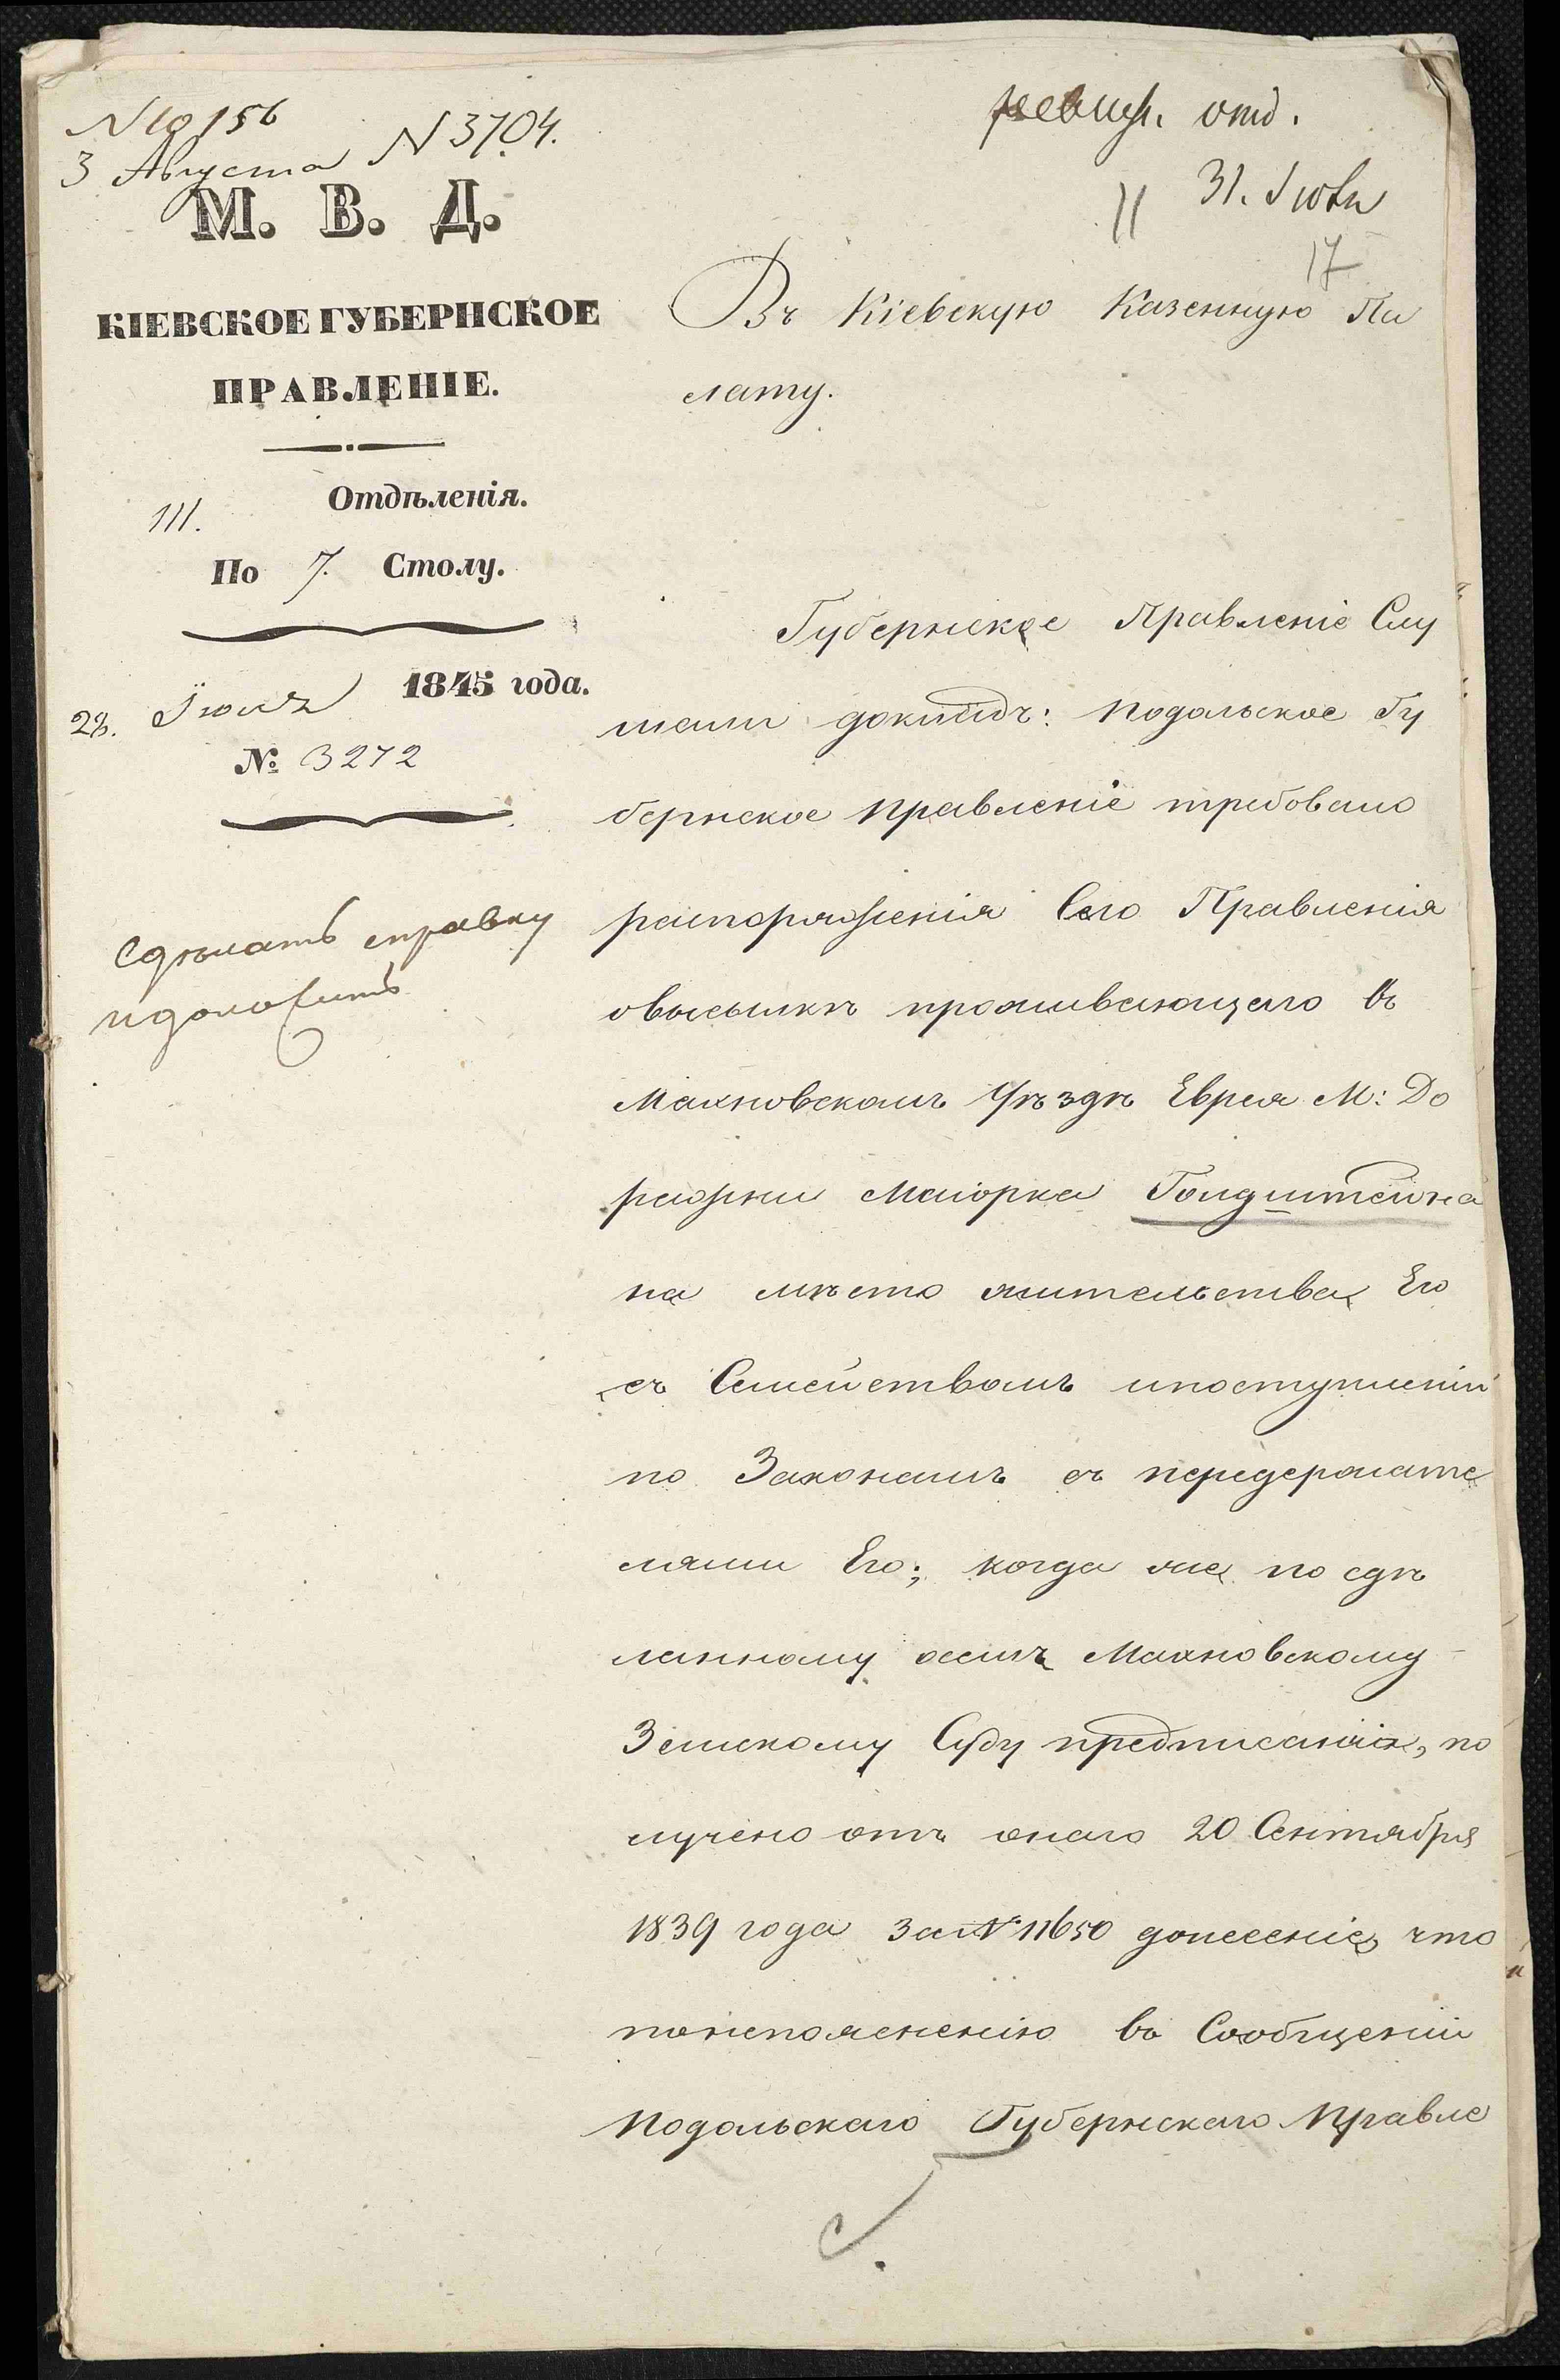 N 10156
3 Августа N 3704.
ревиз. отд.
31. Июля
17
М. В. Д.
КІЕВСКОЕ ГУБЕРНСКОЕ
ПРАВЛЕНІЕ.
III. Отдѣленія.
По 7. Столу.
28. Іюля 1845 года.
№ 3272
Сдѣлать справку
идоложить
Въ Кіевскую Казенную Па
лату.
Губернское Правленіе Слу
шали докладъ: Подольское Гу
бернское Правленіе требовало
распоряженія Сего Правленія
овысылкѣ проживающаго въ
Махновскомъ Уѣздѣ Еврея М: До
ражни Маіорка Голдштейна
на мѣсто жительства Его
съ Семействомъ ипоступленіи
по Законамъ съ передержате
лями Его; когда же по сдѣ
ланному осемъ Махновскому
Земскому Суду предписанію, по
лучено отъ онаго 20 Сентября
1839 года за N 11650 донесеніе, что
понепоясненію въ Сообщеніи
Подольскаго Губернскаго Правле